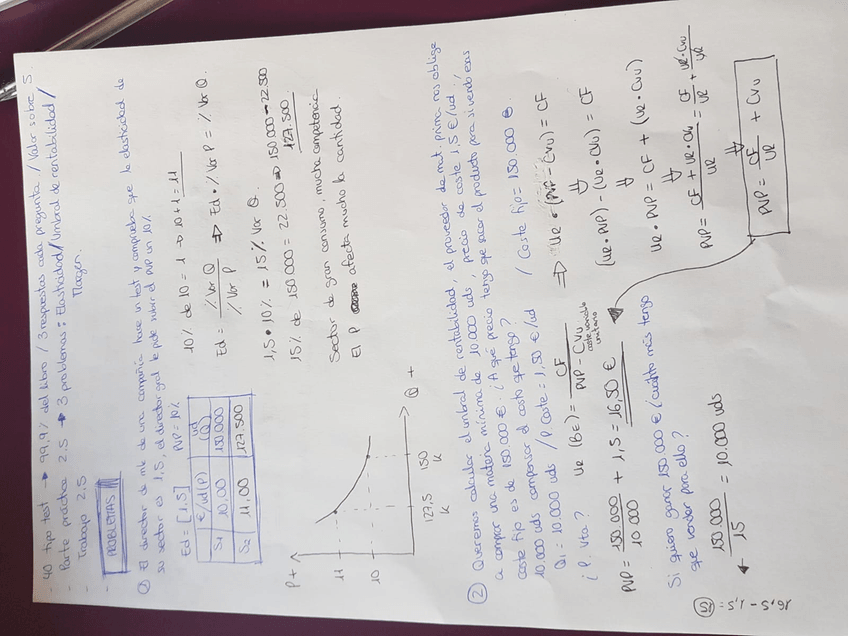 - 40 tipo test → 99,9% del libro / 3 respuestas cada pregunta / Valor sobre 5.
- Parte práctica 2.5 → 3 problemas: Elasticidad / Umbral de rentabilidad /
Margen.
- Trabajo 2,5
- PROBLEMAS
① El director de mk de una compañía hace un test y comprueba que la elasticidad de
su sector es 1,5, el director gral le pide subir el PVP un 10%
Ed = [1,5] PVP = 10%
€/ud (P) ud (Q)
S1 10,00 150.000
S2 11,00 127.500
10% de 10 = 1 → 10 + 1 = 11
Ed = % Var Q / % Var P ⇒ Ed • % Var P = % Var Q.
1,5 • 10% = 15% Var Q.
15% de 150.000 = 22.500 ⇒ 150.000 - 22.500
127.500
Sector de gran consumo, mucha competencia
El P afecta mucho la cantidad.
P +
11
10
127,5 k
150 k
Q +
② Queremos calcular el umbral de rentabilidad, el proveedor de mat. prima nos obliga
a comprar una materia mínima de 10.000 uds, precio de coste 1,5 €/ud,
coste fijo es de 150.000 €. ¿A qué precio tengo que sacar el producto para si vendo esas
10.000 uds compensar el costo que tengo?
Q1 = 10.000 uds / P. Coste = 1,50 €/ud / Coste fijo = 150.000 €
¿P. Vta? UR (BE) = CF / PVP - CVU ⇒ UR • (PVP - CVU) = CF
coste variable
unitario
(UR • PVP) - (UR • CVU) = CF
UR • PVP = CF + (UR • CVU)
PVP = CF + UR • CVU / UR = CF / UR + UR • CVU / UR
PVP = CF / UR + CVU
PVP = 150.000 / 10.000 + 1,5 = 16,50 €
Si quiero ganar 150.000 € ¿cuánto más tengo
que vender para ello?
150.000 / 15 = 10.000 uds
16,5 - 1,5 = 15